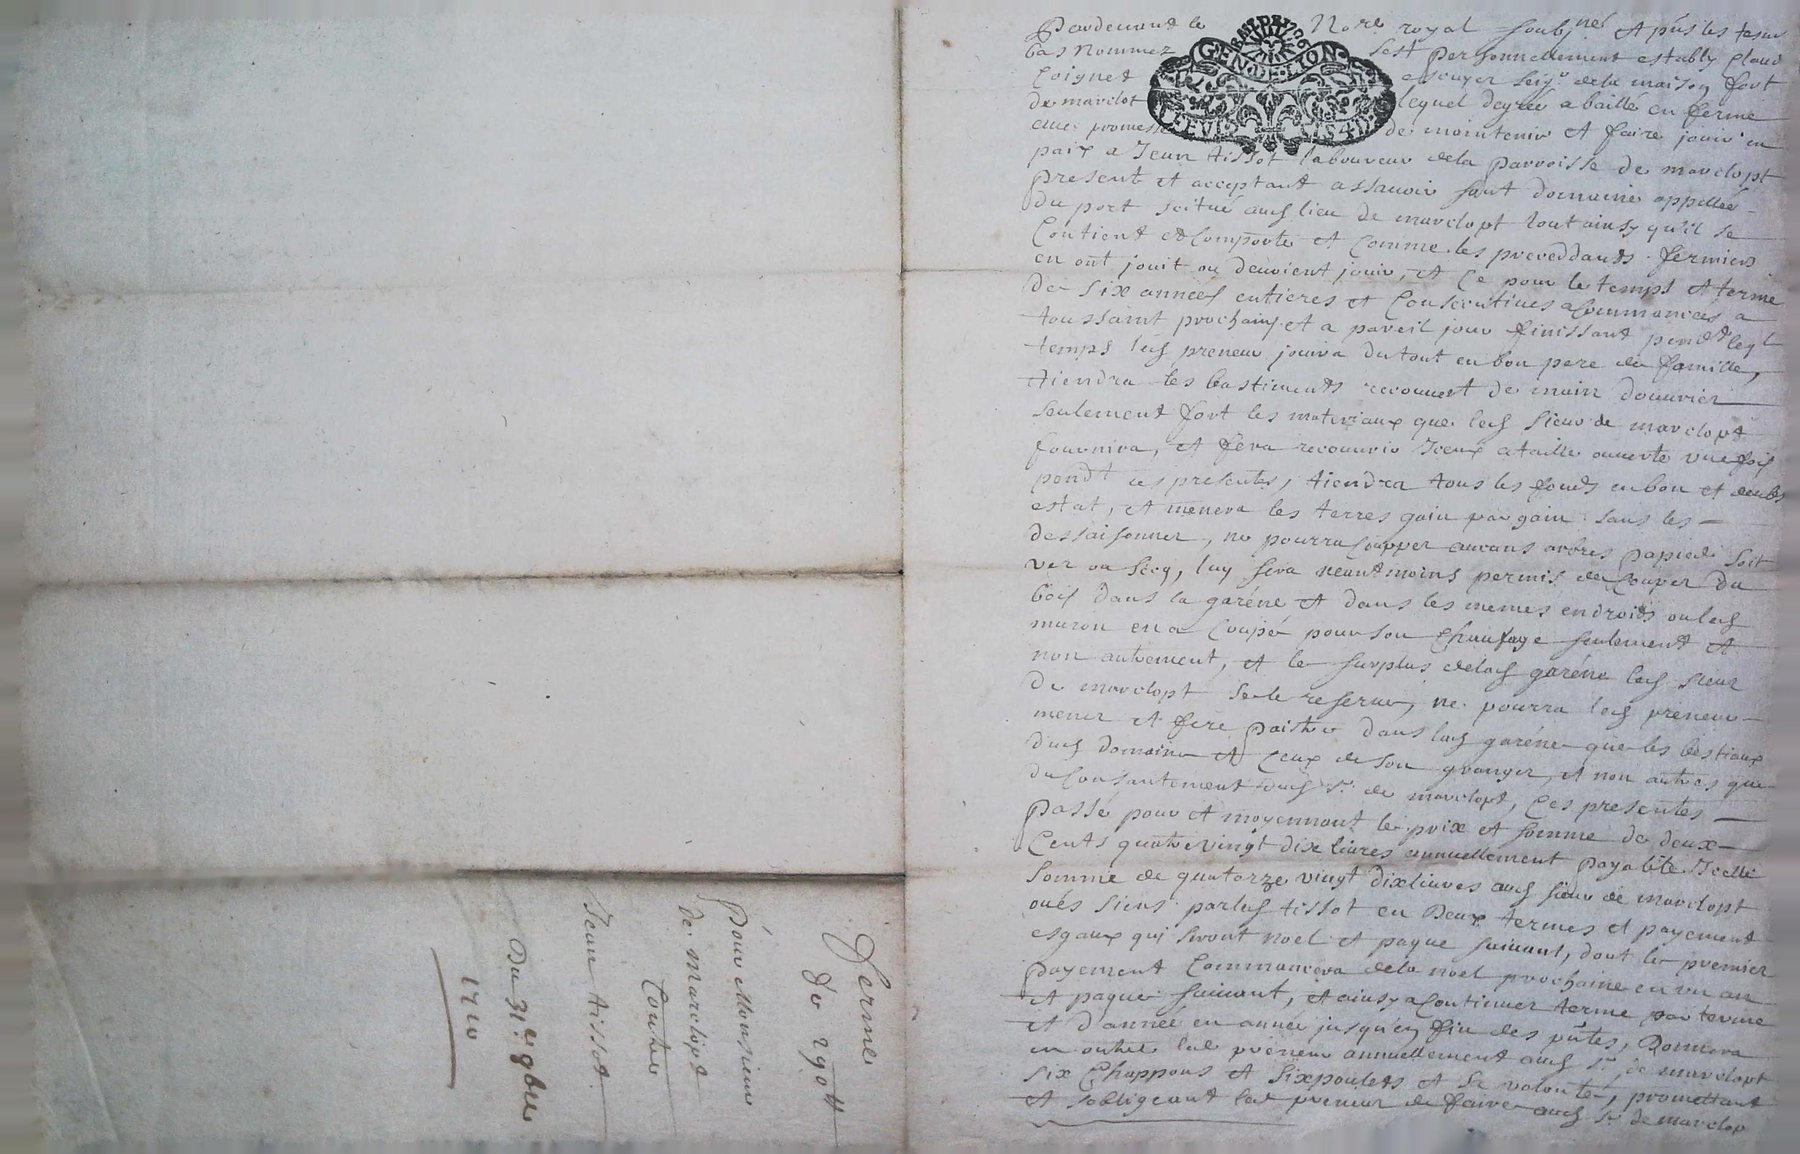 Pardevant le No.re royal soubz.né et p̃ns les tesm
bas nommez s'est personnellement estably Claud
Coignet escuyer seig.r de la maison fort
de marclot lequel degrée a baillé en ferme
avec promesse de maintenir et faire jouir en
paix a Jean tissot laboureur de la parroisse de marclopt
present et acceptant assauoir sont domaine appellée
du port scitué aud lieu de marclopt tout ainsy qu'il se
Contient et Comporte et Comme les preceddants fermiers
en ont jouit ou deuvient jouir, et Ce pour le temps et terme
de six années entieres et Consecutives a Commancer a
toussaint prochain et a pareil jour finissant pendt leql
temps led preneur jouira du tout en bon pere de famille,
tiendra les bastiments recouvert de main douurier
seulement fort les materiaux que led sieur de marclopt
fournira, et fera recouurir Jceux a taille ouuerte vne fois
pendt ces presentes, tiendra tous les fonds en bon et deubs
estat, et menera les terres gain par gain sans les
dessaisonner, ne pourra Coupper aucuns arbres par pied soit
ver ou secq, luy sera neantmoins permis de Couper du
bois dans la garéne et dans les memes endroits ou led
muron en a Coupé pour son Chaufage seulement et
non autrement, et le surplus de lad garéne led sieur
de marclopt se le reserue, ne pourra led preneur
mener et fere paistre dans lad garéne que les bestiaux
dud domaine et Ceux de son granger, et non autres que
du Consantement dud s.r de marclopt, Ces presentes
passé pour et moyennant le prix et somme de deux
Cents quatre vingt dix liures annuellement payable Jcelle
somme de quatorze vingt dix liures aud sieur de marclopt
ou és siens par led tissot en Deux termes et payement
esgaux qui seront noel et paque suiuant, dont le premier
payement Commancera de la noel prochaine en vn an
et paque suiuant, et ainsy a Continuer terme par terme
et d'année en année jusqu'en fin des p̃ntes, Donnera
en outre led preneur annuellement aud s.r de marclopt
six Chappons et six poulets et se volonte, promettant
et sobligeant led preneur de faire aud s.r de marclop
GEN DE LION
Ferme
de 290 ₶
Pour Monsieur
de marclopt
Contre
Jean tissot
Du 31.e 8bre
1710